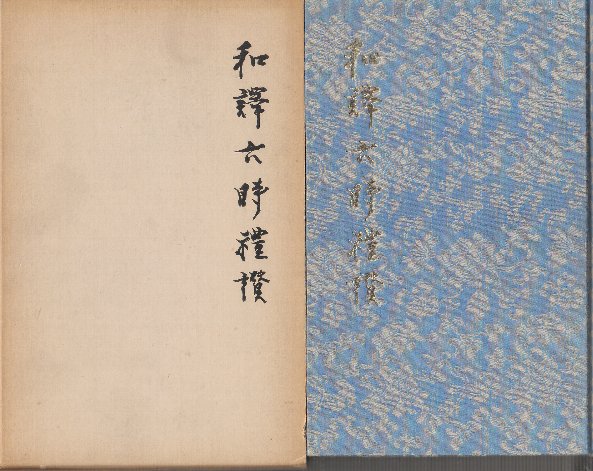 和譯六時禮讃
和譯六時禮讃